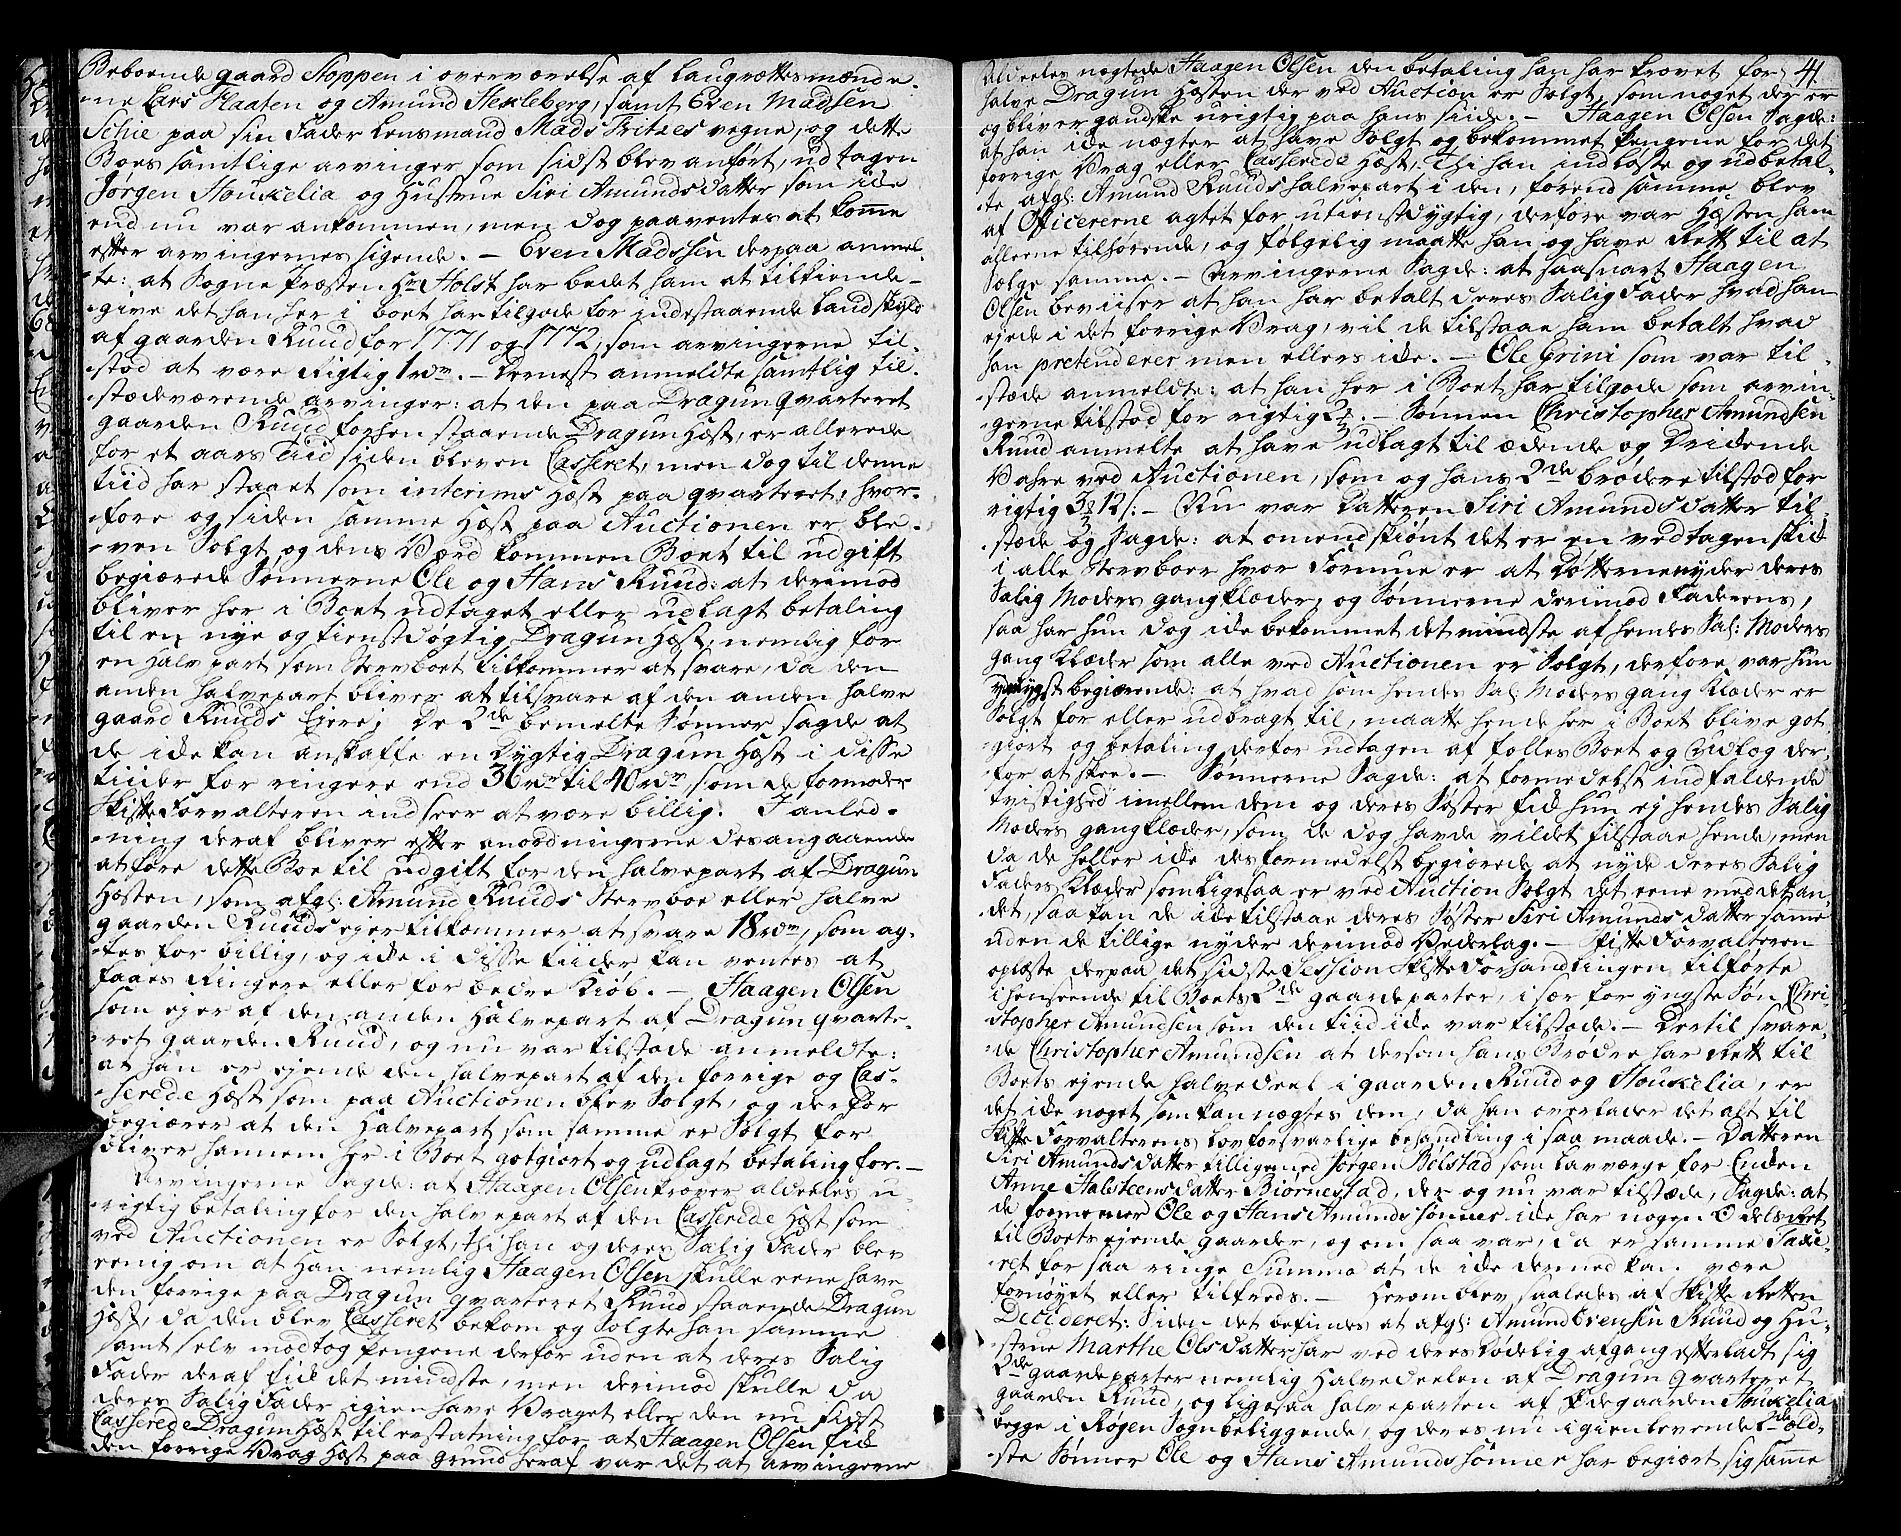 Beboende gaard Hoppen i overværelse af Laugrettesmænde-
ne Lars Flaaten og Amund Hexleberg, samt Even Madsen
Schie paa sin Fader Lensmand Mads Fritzes vegne, og dette
Boes samtlige arvinger som sidst blev anført, udtagen
Jørgen Houkelia og Hustrue Siri Amunds datter som ide
end nu var ankommen, men dog paaventes at komme
efter arvingernes sigende. - Even Madssen derpaa anmel-
te: at Sogne Præsten Hr Holst har bedet ham at tilkiende-
give det han her i boet har tilgode for indestaaende Landskyld
af gaarden Ruud for 1771 og 1772, som arvingerne til-
stod at være Rigtig 1 rdr. - Dernest anmeldte samtlig til-
stædeværende arvinger: at den paa Dragunqvarteret
gaarden Ruud forhen staaende Dragun Hæst, er allerede
for et aars Tiid siden bleven Casseret, men dog til denne
tiid har staaet som interims Hæst paa qvarteret, hvor-
fore og siden samme Hæst paa Auctionen er ble-
ven Solgt og dens Værd kommen Boet til udgift
begiærede Sønnerne Ole og Hans Ruud: at derimod
bliver her i Boet udtaget eller udlagt betaling
til en nye og tienstdygtig Dragun Hæst, nemlig for
en halv part som Stervboet tilkommer at svare, da den
anden halvepart bliver at tilsvare af den anden halve
gaard Ruuds Ejere; De 2de bemelte Sønner sagde at
de ide kan anskaffe en Dygtig Dragun Hæst i disse
tiider for ringere end 36 rdr til 40 rdr som de formoder
Skifte Forvalteren indseer at være billig. I anled-
ning deraf bliver efter anordningerne desangaaende
at føre dette Boe til udgift for den halvepart af Dragun
Hæsten, som afgl: Amund Ruuds Stervboe eller halve
gaarden Ruuds ejer tilkommer at svare 18 rdr, som ag-
tes for billig, og ide i disse tiider kan ventes at
faaes Ringere eller for bedre Kiøb. - Haagen Olsen
som ejer af den anden Halvepart af Dragun qvarte-
ret gaarden Ruud, og nu var tilstæde anmeldte:
at han er ejende den halvepart af den forrige og Cas-
serede Hæst som paa Auctionen blev Solgt, og derfor
begiærer at den Halvepart som samme er Solgt for
bliver hannem her i Boet gotgiort og udlagt betaling for. -
Arvingerne Sagde: at Haagen Olsen kræver aldeeles u-
rigtig betaling for den halvepart af den Casserede Hæst som
ved Auctionen er Solgt, thi han og deres Salig Fader blev
eenig om at Han nemlig Haagen Olsen skulle eene have
den forrige paa Dragun qvarteret Ruud staaende Dragun
Hæst, da den blev Casseret bekom og Solgte han samme
samt selv modtog Pengene derfor uden at deres Salig
Fader deraf fik det mindste, men derimod skulle da
deres Salig Fader igien have Vraget eller den nu sidst
Casserede Dragun Hæst til erstatning for at Haagen Olsen fik
den forrige Vrag Hæst paa grund heraf var det at arvingerne
41
aldeeles nægtede Haagen Olsen den betaling han har krævet for
halve Dragun Hæsten der ved Auction er Solgt, som noget der er
og bliver gandske urigtig paa hans siide. - Haagen Olsen Sagde:
at han ide nægter at have Solgt og bekommet Pengene for det
forrige Vrag eller Casserede Hæst, Thi han indløste og udbetal-
te afgl: Amund Ruuds halvepart i den, førend samme blev
af Officererne agtet for utienstdygtig, derfore var Hæsten ham
alleene tilhørende, og følgelig maatte han og have Rett til at
Sælge samme. - Arvingerne Sagde: at saasnart Haagen
Olsen beviiser at han har betalt deres Salig Fader hvad han
ejede i det forrige Vrag, vil de tilstaae ham betalt hvad
han pretenderer men ellers ide. - Ole Grini som var til-
stæde anmeldte: at han her i Boet har tilgode som arvin-
gerne tilstod for rigtig . - Sønnen Christopher Amundsen
Ruud anmelte at have udlagt til ædende og Drickende
Vahre ved Auctionen, som og hans 2de brødre tilstod for
rigtig 3 12 s: - Nu var Datteren Siri Amunds datter til-
stæde og Sagde: at omendskiønt det er en vedtagen skik
i alle Stervboer hvor Formue er at Døtterne nyder deres
Salig Moders gangklæder, og Sønnerne derimod Faderens,
saa har hun dog ide bekommet det mindste af hendes Sal: Moders
gang Klæder som alle ved Auctionen er Solgt, derfore var hun
ydmygst begiærende: at hvad som hendes Sal: Moders gang Klæder er
Solgt for eller udbragt til, maatte hende her i Boet blive got-
giort og betaling derfor udtagen af fælles Boet og Udlæg der-
for at skee. - Sønnerne Sagde: at formedelst indfaldende
tvistighed imellem dem og deres Søster fik hun ej hendes Salig
Moders gangklæder, som de dog havde vildet tilstaae hende, men
da de heller ide desformedelst begiærede at nyde deres Salig
Faders Klæder som ligesaa er ved Auction Solgt det eene med det an-
det, saa kan de ide tilstaae deres Søster Siri Amunds datter same
uden de tillige nyder derimod Vederlag. - Skifte Forvalteren
oplæste derpaa det sidste Session Skifte Forhandlingen tilførte
i henseende til Boets 2de gaardeparter, i sær for yngste Søn Chri-
stopher Amundsen som den tiid ide var tilstæde. - Dertil svare-
de Christopher Amundsen at dersom hans Brødre har Rett til
Boets ejende halvedeel i gaarden Ruud og Houkelia, er
det ide noget som kan nægtes dem, da han overlader det alt til
Skifte Forvalterens lovforsvarlige behandling i saa maade. - Datteren
Siri Amunds datter tilligemed Jørgen Bølstad som Lavværge for Enken
Anne Halsteens datter Biørnestad, der og nu var tilstæde, Sagde: at
de formener Ole og Hans Amunds sønner ide har nogen Odels Rett
til Boets ejende gaarder, og om saa var, da er samme Taxe-
ret for saa ringe Summa at de ide dermed kan være
fornøyet eller tilfreds. - Herom blev saaledes af Skifte Retten
Decideret: Siden det befindes at afgl: Amund Evensen Ruud og Hu-
strue Marthe Olsdatter har ved deres Dødelig afgang efterladt sig
2de gaardeparter nemlig Halvedeelen af Dragun qvarteret
gaarden Ruud, og ligesaa halveparten af Ødegaarden Houkelia
begge i Røgen Sogn beliggende, og deres nu igienlevende 2de æld-
ste Sønner Ole og Hans Amunds sønner har begiært sig samme